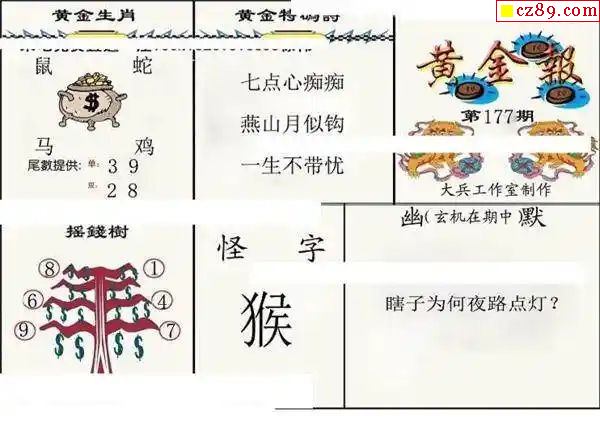 cz89.com
黄金生肖
鼠 蛇
马 鸡
尾數提供: 单: 3 9
双: 2 8
七点心痴痴
燕山月似钩
一生不带忧
黄金報
第177期
大兵工作室制作
摇錢樹
⑧ ①
⑥ ④
⑨ ⑦
怪 字
猴
幽(玄机在期中)默
瞎子为何夜路点灯？